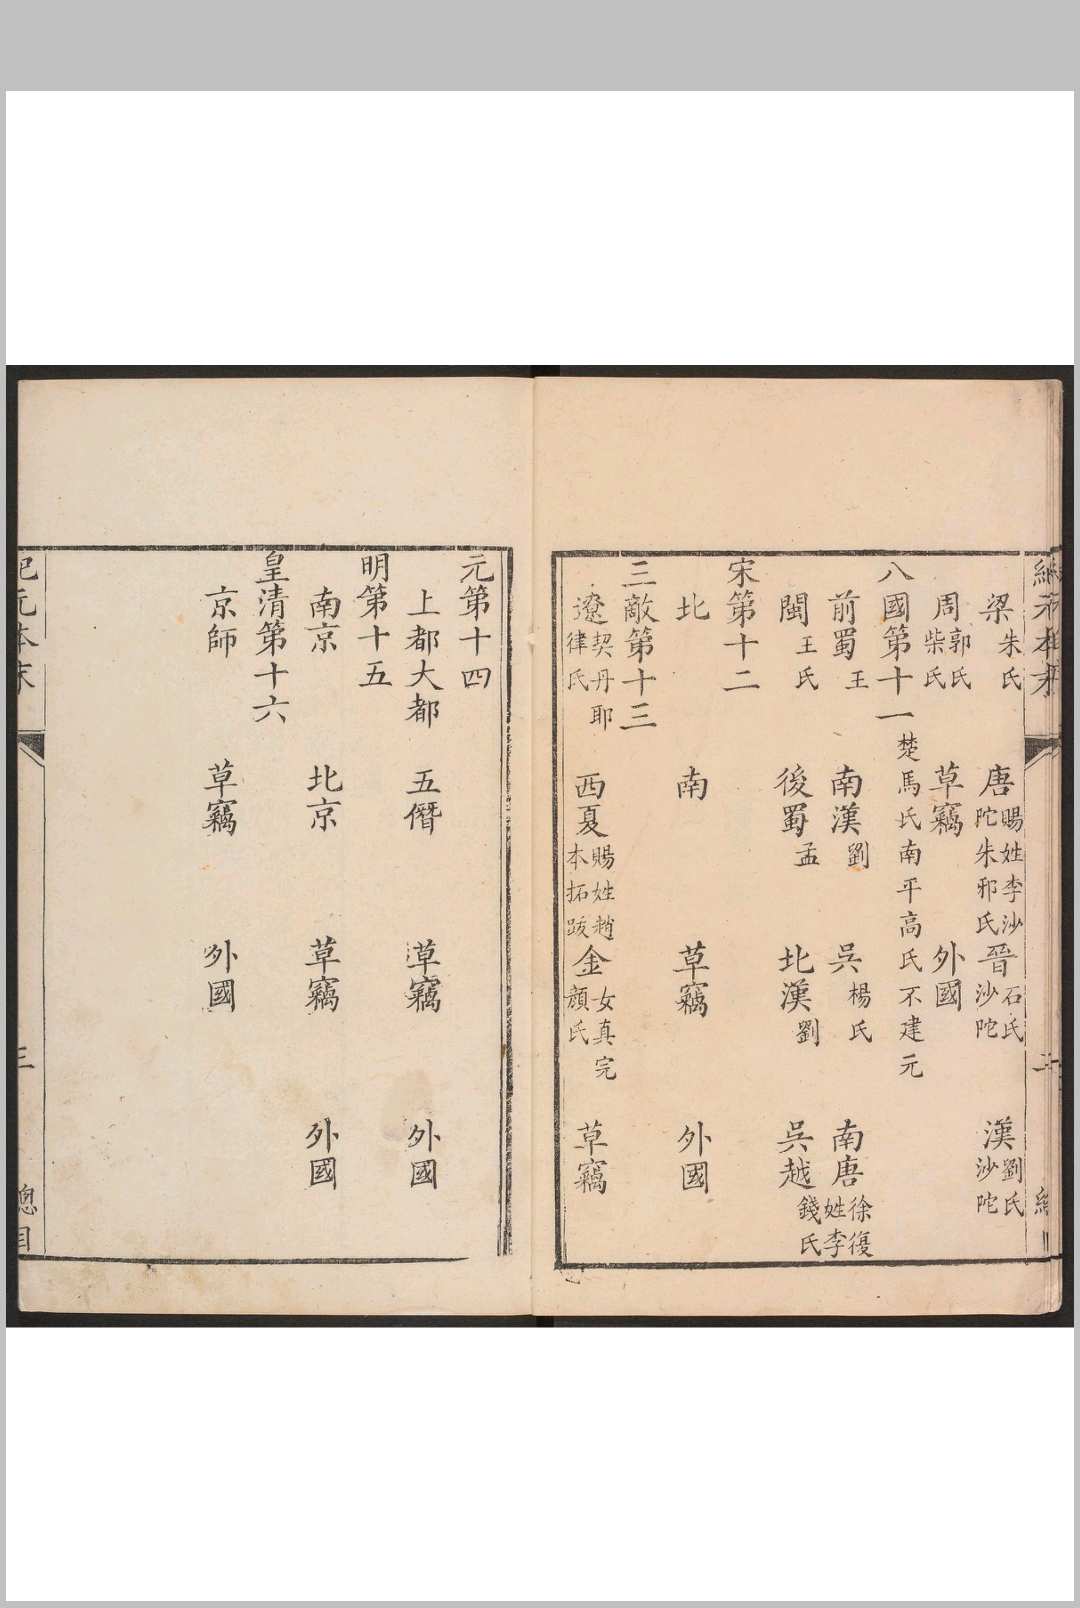 紀元本末
梁朱氏　唐賜姓李沙陀朱邪氏　晉石氏沙陀　漢劉氏沙陀
周郭氏柴氏　草竊　外國
八國第十一楚馬氏南平高氏不建元
前蜀王　南漢劉　吳楊氏　南唐徐復姓李
閩王氏　後蜀孟　北漢劉　吳越錢氏
宋第十二
北　南　草竊　外國
三敵第十三
遼契丹耶律氏　西夏賜姓趙本拓跋　金女真完顏氏　草竊
元第十四
上都大都　五僭　草竊　外國
明第十五
南京　北京　草竊　外國
皇清第十六
京師　草竊　外國
紀元本末　三　總目